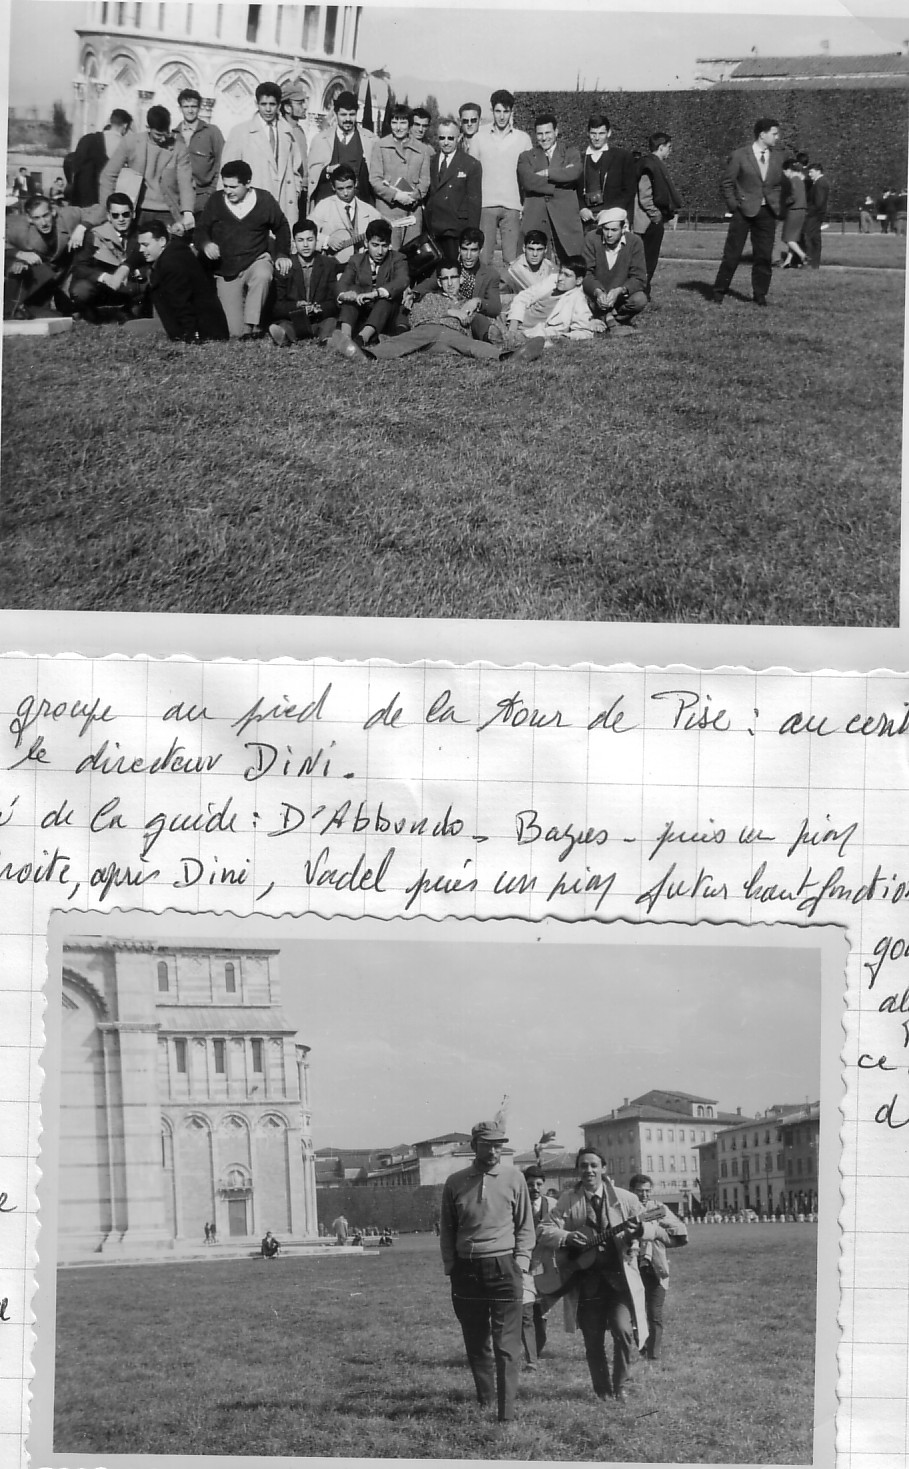 groupe au pied de la tour de Pise : au cent
le directeur DiNi.
é de la guide : D'Abbundo - Bazus - puis un pion
roite, après Dini, Vadel puis un pion futur haut fonction
go
al
ce
d
e